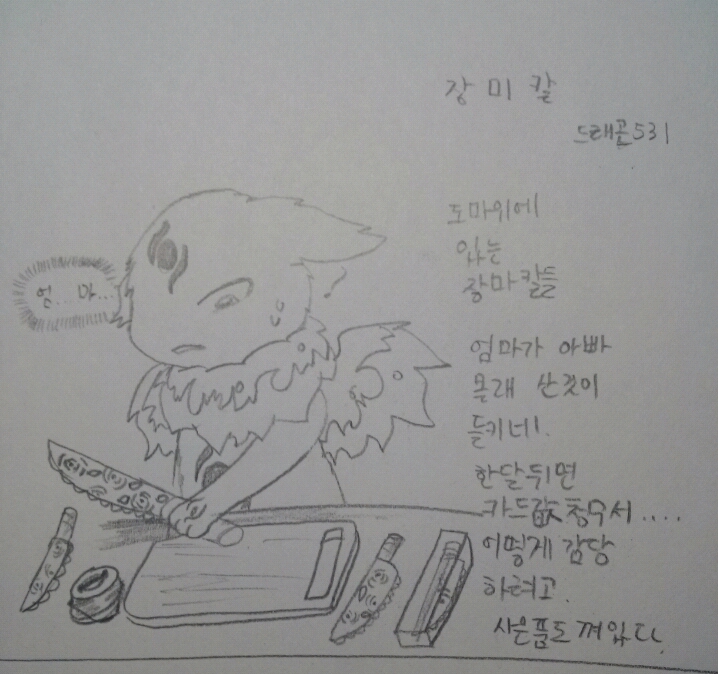 장미칼
드래곤531
도마위에
있는
장미칼들
엄마가 아빠
몰래 산것이
들키네!
한달뒤면
카드값 청구서....
어떻게 감당
하려고.
사은품도 껴있다.
엄... 마...